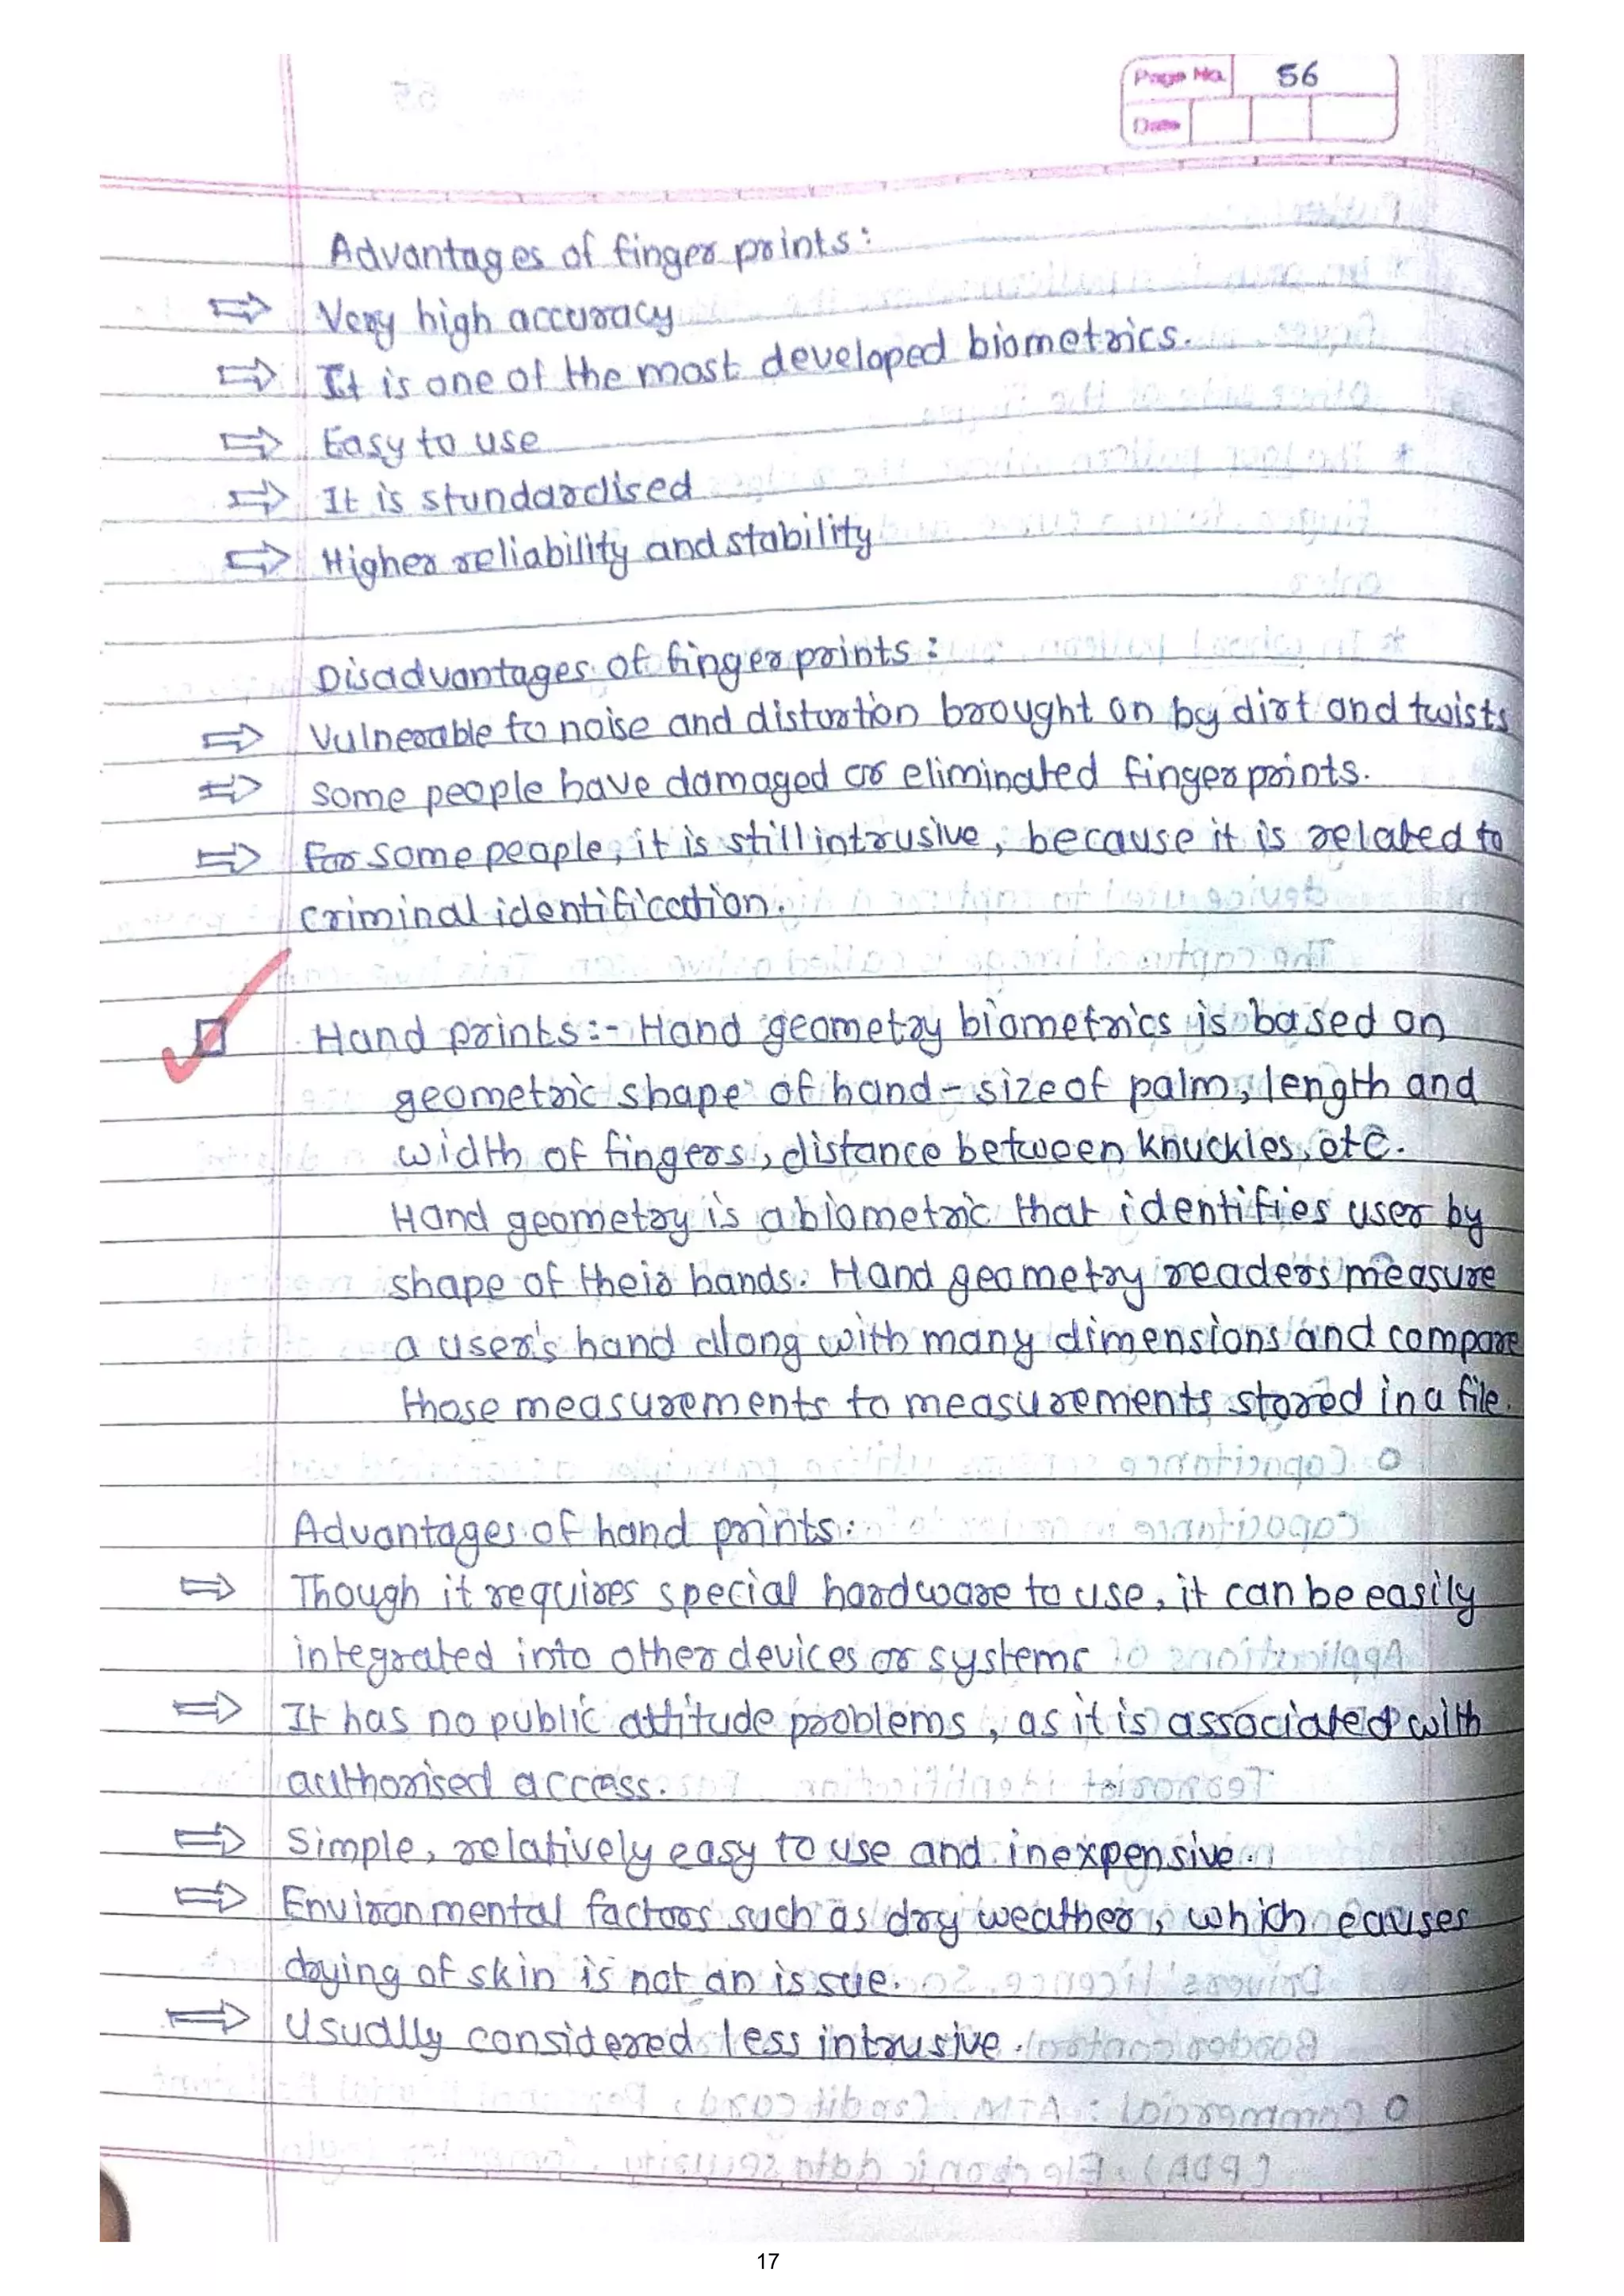 Page No. 56
Date
Advantages of finger prints:
⇒ Very high accuracy
⇒ It is one of the most developed biometrics.
⇒ Easy to use
⇒ It is stundardised
⇒ Higher reliability and stability
Disadvantages of fingerprints:
⇒ Vulnerable to noise and distortion brought on by dirt and twists
⇒ some people have damaged or eliminated fingerprints.
⇒ For some people, it is still intrusive, because it is related to
criminal identification.
Hand prints:- Hand geometry biometrics is based on
geometric shape of hand - size of palm, length and
width of fingers, distance between knuckles, etc.
Hand geometry is a biometric that identifies user by
shape of their hands. Hand geometry readers measure
a user's hand along with many dimensions and compare
those measurements to measurements stored in a file.
Advantages of hand prints:
⇒ Though it requires special hardware to use, it can be easily
integrated into other devices or systems
⇒ It has no public attitude problems, as it is associated with
authorised access.
⇒ Simple, relatively easy to use and inexpensive.
⇒ Environmental factors such as dry weather, which causes
drying of skin is not an issue.
⇒ Usually considered less intrusive.
17